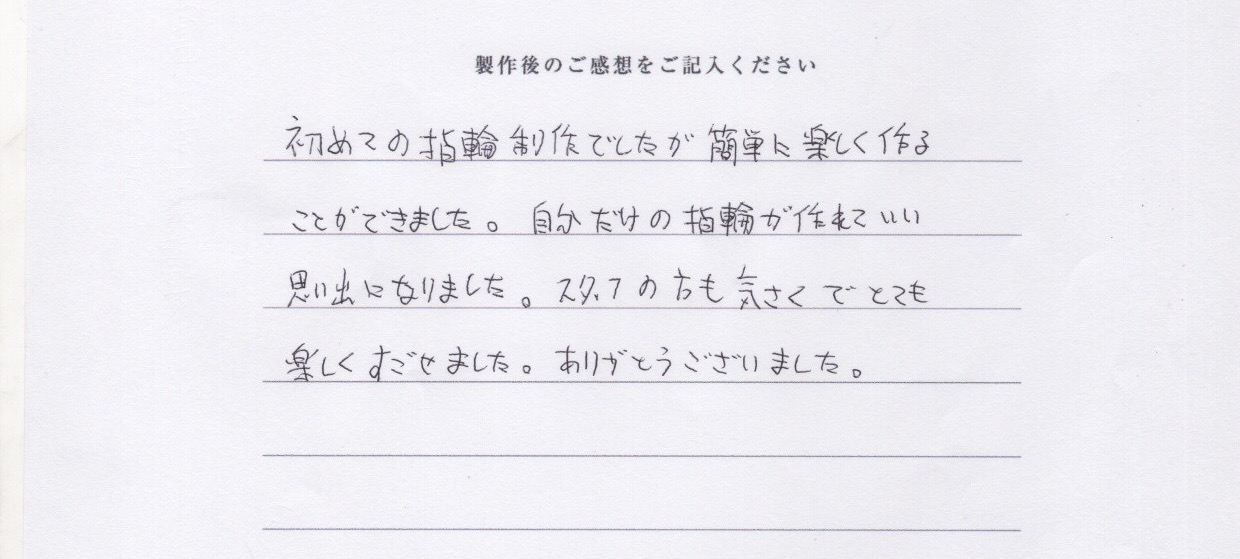 製作後のご感想をご記入ください
初めての指輪制作でしたが簡単に楽しく作る
ことができました。自分だけの指輪が作れていい
思い出になりました。スタッフの方も気さくでとても
楽しくすごせました。ありがとうございました。